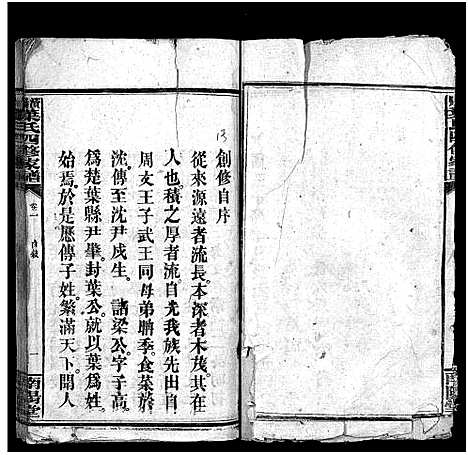 創修自序
從來源遠者流長本深者木茂其在
人也積之厚者流自光我族先出自
周文王子武王同母弟聃季食菜於
沈傳至沈尹戌生諸梁公字子高
為楚葉縣尹肇封葉公就以葉為姓
始焉於是歷傳子姓繁滿天下開人
葉氏四修家譜
卷一
自敘
一
南陽堂